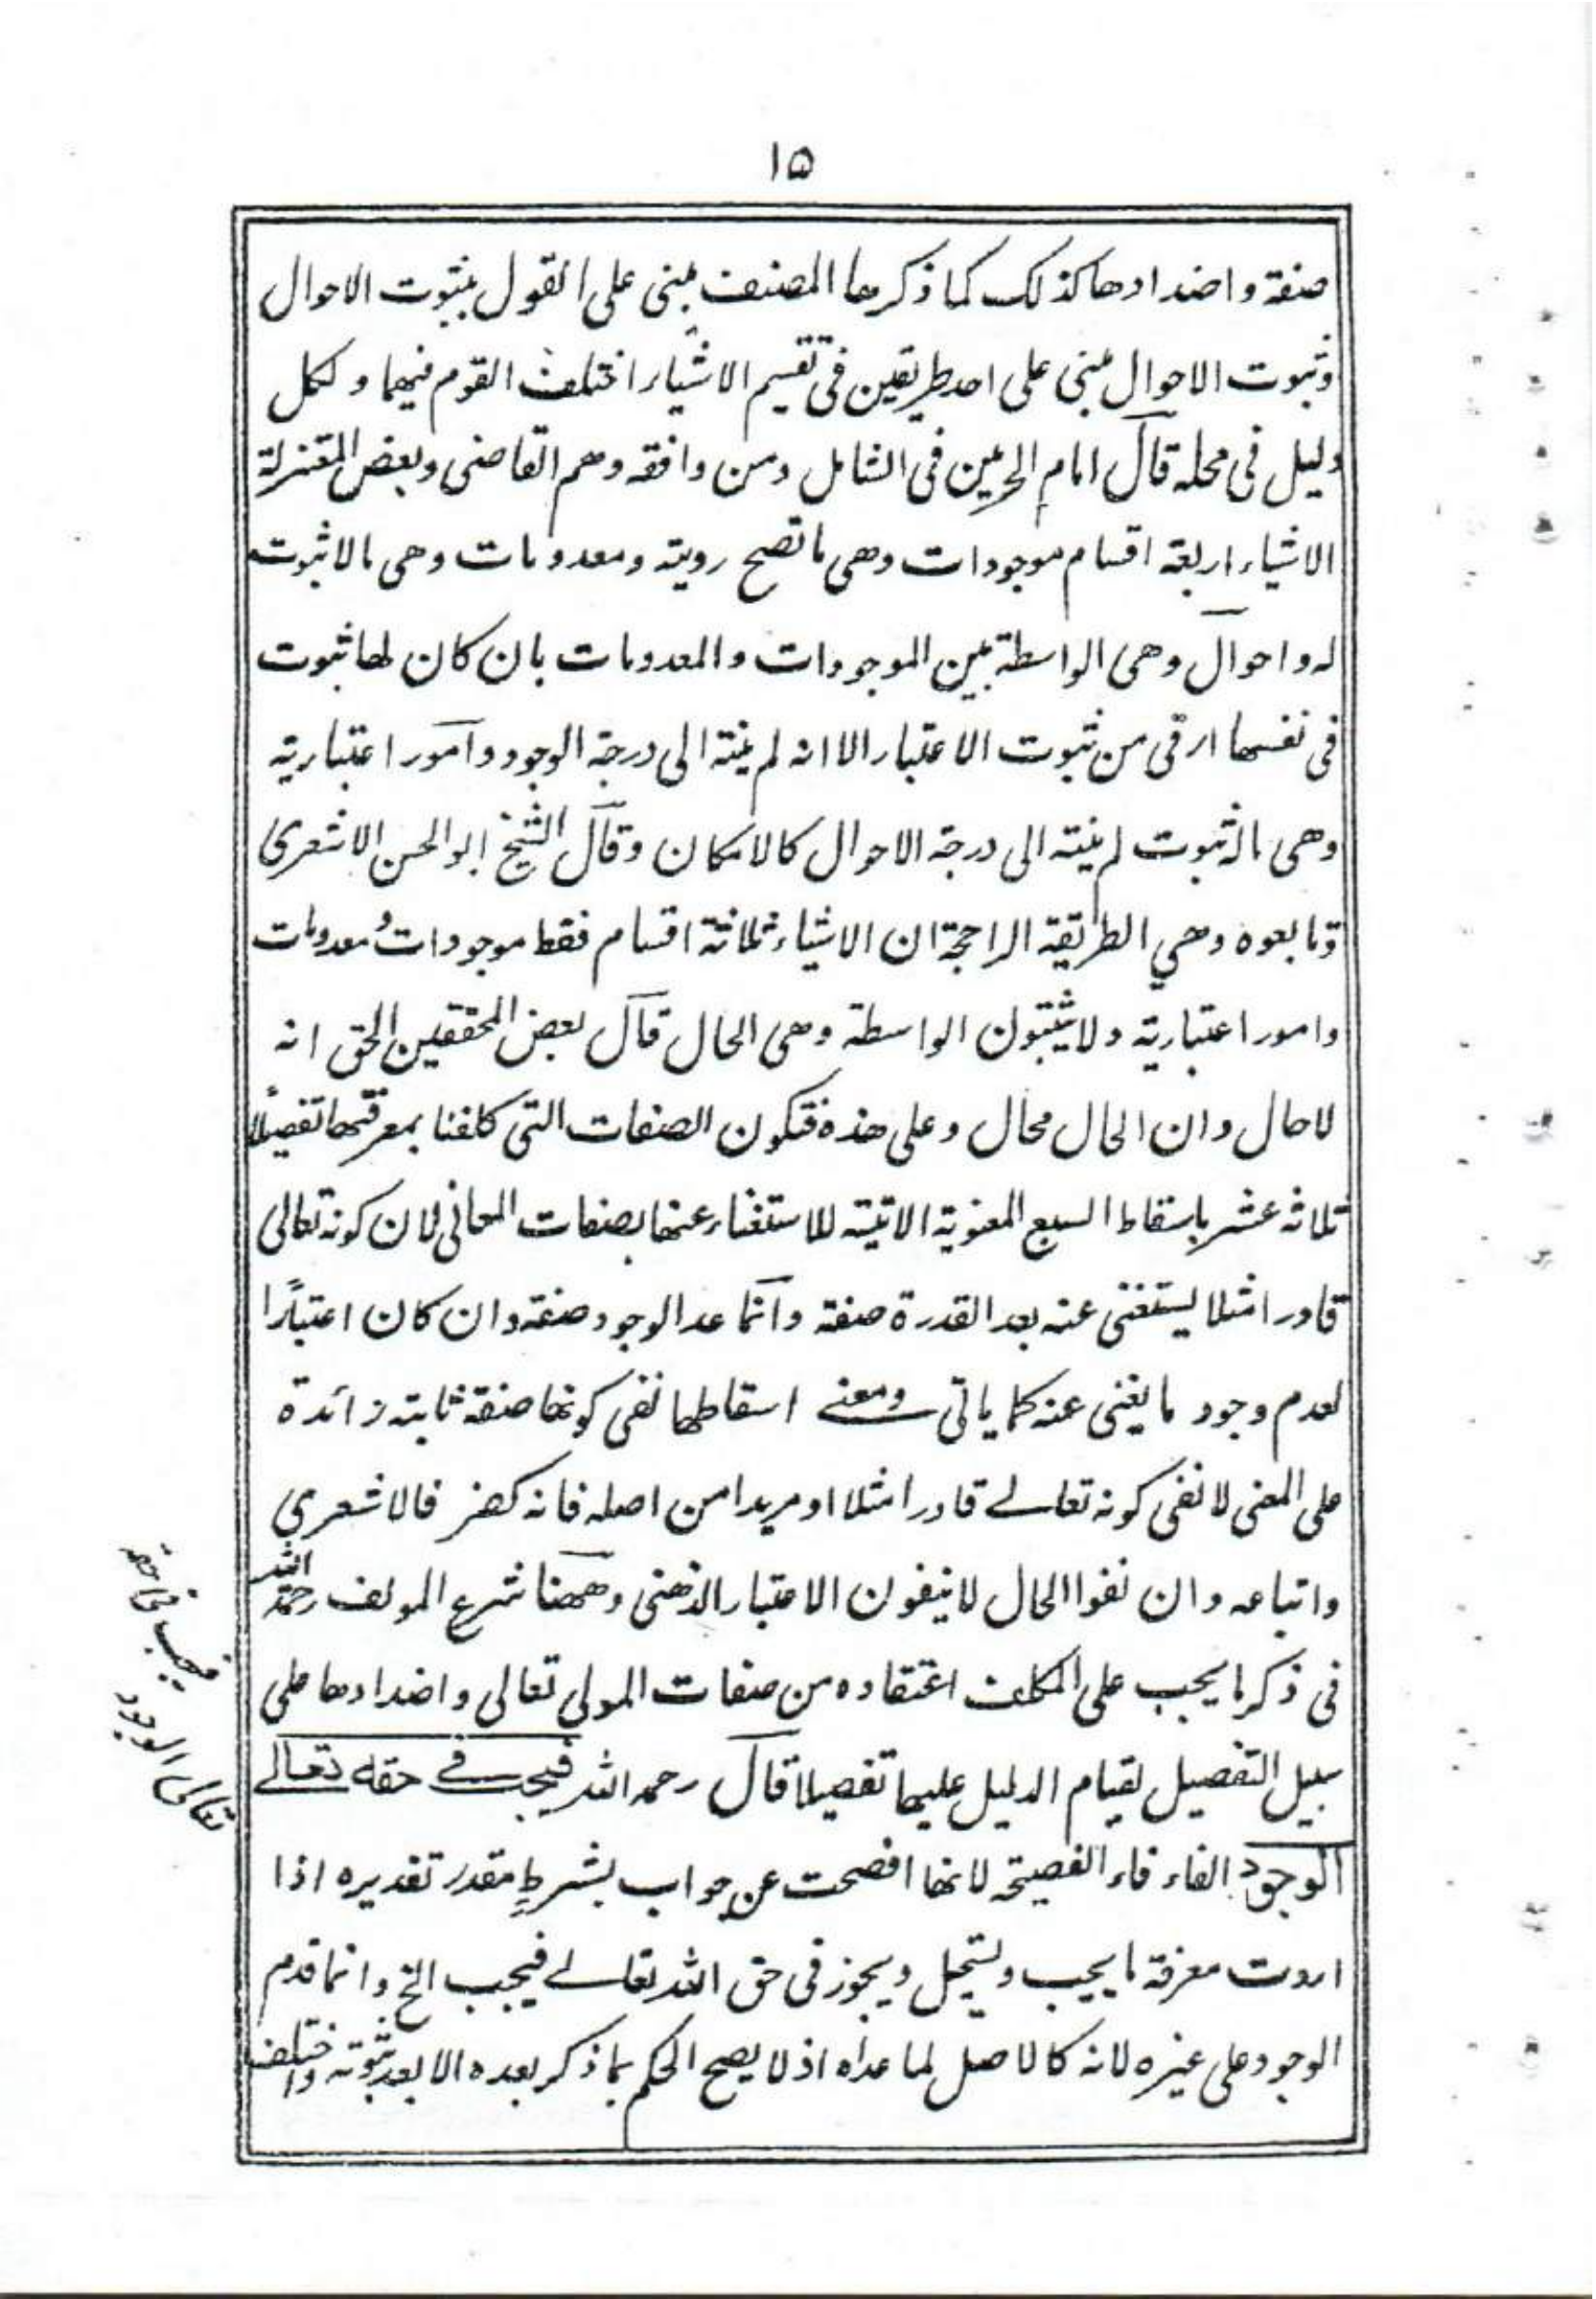 ١٥
صفة واضدادها كذلك كما ذكرها المصنف مبنى على القول بثبوت الاحوال
وثبوت الاحوال مبنى على احد طريقين فى تقسيم الاشياء اختلف القوم فيها ولكل
دليل فى محله قال امام الحرمين فى الشامل ومن وافقه وهم القاضى وبعض المعتزلة
الاشياء اربعة اقسام موجودات وهى ما تصح رويته ومعدومات وهى مالا ثبوت
له واحوال وهى الواسطة بين الموجودات والمعدومات بان كان لها ثبوت
فى نفسها ارقى من ثبوت الاعتبار الا انه لم ينته الى درجة الوجود وامور اعتبارية
وهى ماله ثبوت لم ينته الى درجة الاحوال كالامكان وقال الشيخ ابو الحسن الاشعرى
وتابعوه وهي الطريقة الراجحة ان الاشياء ثلاثة اقسام فقط موجودات ومعدومات
وامور اعتبارية ولا يثبتون الواسطة وهى الحال قال بعض المحققين الحق انه
لا حال وان الحال محال وعلى هذه فتكون الصفات التى كلفنا بمعرفتها تفصيلًا
ثلاثة عشر باسقاط السبع المعنوية الاتية للاستغناء عنها بصفات المعانى لان كونه تعالى
قادرا مثلا يستغنى عنه بعد القدرة صفة وانما عد الوجود صفة وان كان اعتبارًا
لعدم وجود ما يغنى عنه كما ياتى ومعنے اسقاطها نفى كونها صفة ثابتة زائدة
على المعنى لا نفى كونه تعالے قادرا مثلا او مريدا من اصله فانه كفر فالاشعري
واتباعه وان نفوا الحال لا ينفون الاعتبار الذهنى وههنا شرع المولف رحمه الله
فى ذكر ما يجب على المكلف اعتقاده من صفات المولى تعالى واضدادها على
سبيل التفصيل لقيام الدليل عليها تفصيلا قال رحمه الله فيجب فے حقه تعالے
الوجود الفاء فاء الفصيحة لانها افصحت عن جواب بشرطٍ مقدر تقديره اذا
اردت معرفة ما يجب ويستحيل ويجوز فى حق الله تعالے فيجب الخ وانما قدم
الوجود على غيره لانه كالاصل لما عداه اذ لا يصح الحكم بما ذكر بعده الا بعد ثبوته واختلف
فيجب فى حقه
تعالى الوجود